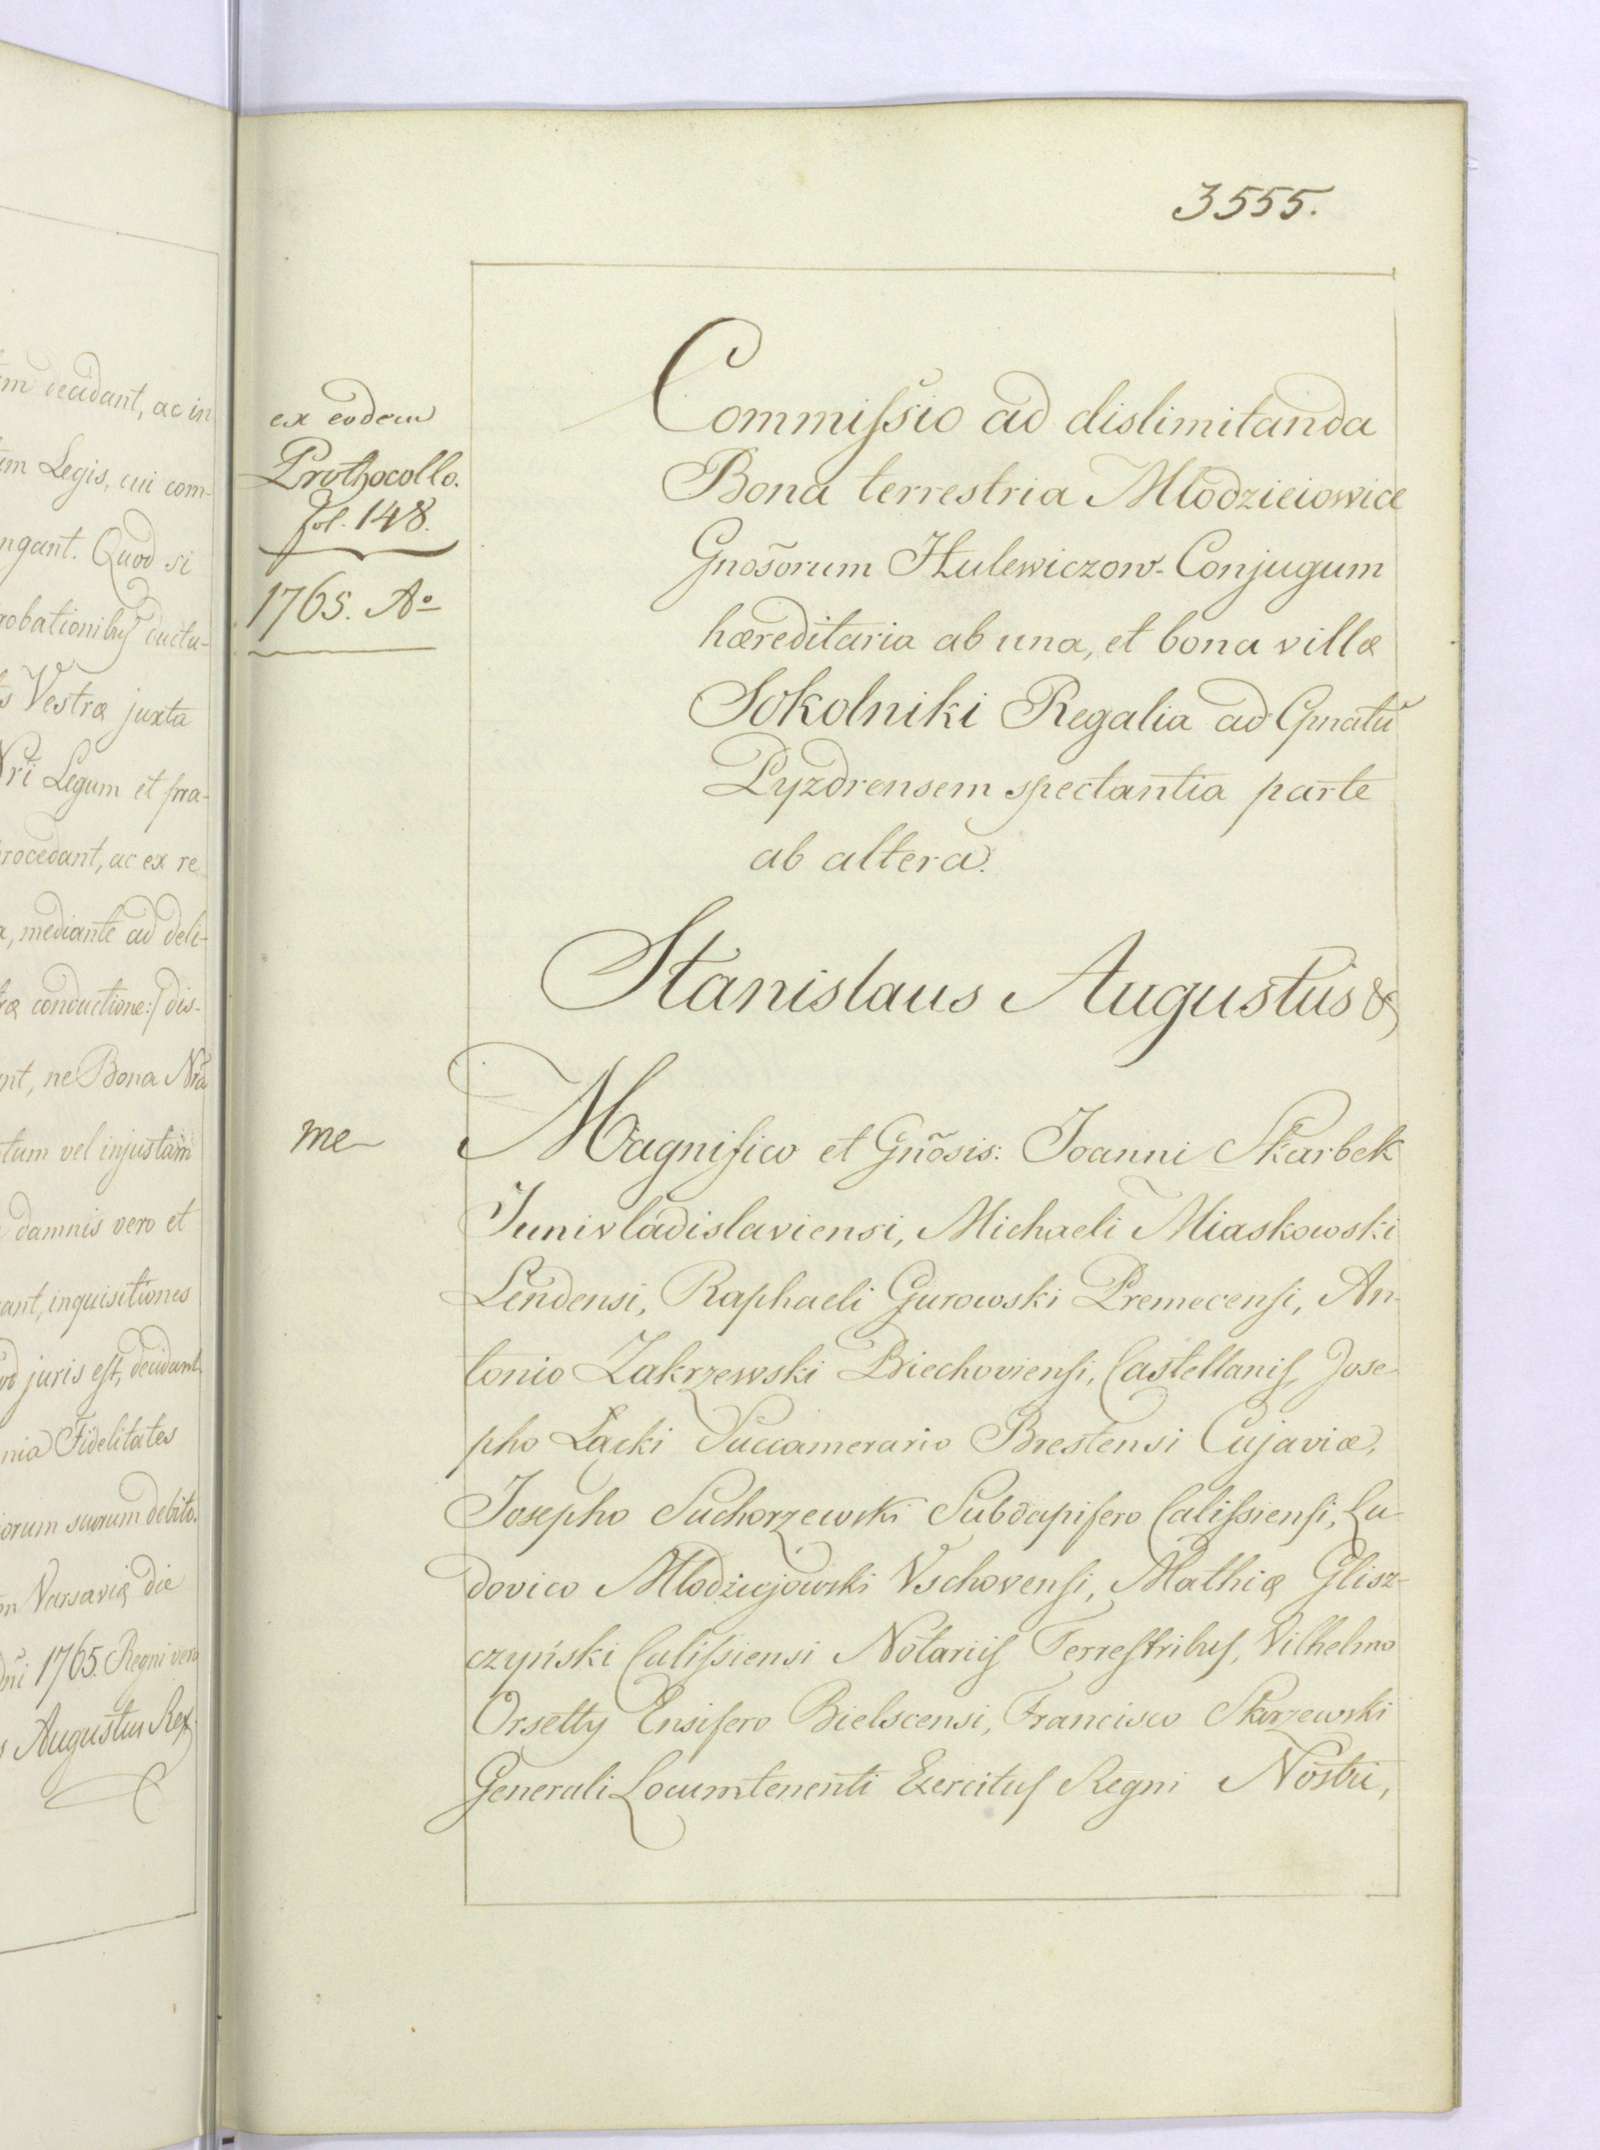 em decidant, ac in
um Legis, cui com-
ngant. Quod si
robationibus ductu-
s Vestræ juxta
Nri Legum et præ-
rocedant, ac ex re
, mediante ad deli-
conductione:/ dis-
nt, ne Bona Nrã
tum vel injustam
damnis vero et
ant, inquisitiones
juris est, decidant
nia Fidelitates
iorum suorum debito.
Varsaviæ die
dni 1765. Regni vero
s Augustus Rex.
3555.
ex eodem
Prothocollo.
fol. 148.
1765. Aº
Commissio ad dislimitanda
Bona terrestria Młodzieiowice
Gnosõrum Hulewiczow Conjugum
hæreditaria ab una, et bona villæ
Sokolniki Regalia ad Gnatũ
Pyzdrensem spectantia parte
ab altera.
Stanislaus Augustus &
me
Magnifico et Gnõsis: Joanni Skarbek
Junivladislaviensi, Michaeli Miaskowski
Lendensi, Raphaeli Gurowski Premecensi, An-
tonio Zakrzewski Biechoviensi, Castellanis, Jose-
pho Łącki Succamerario Brestensi Cujaviæ,
Josepho Suchorzewski Subdapifero Calissiensi, Lu-
dovico Młodziejowski Vschovensi, Mathiæ Glisz-
czyński Calissiensi Notariis Terrestribus, Vilhelmo
Orsetty Ensifero Bielscensi, Francisco Skarzewski
Generali Locumtenenti Exercitus Regni Nostri,